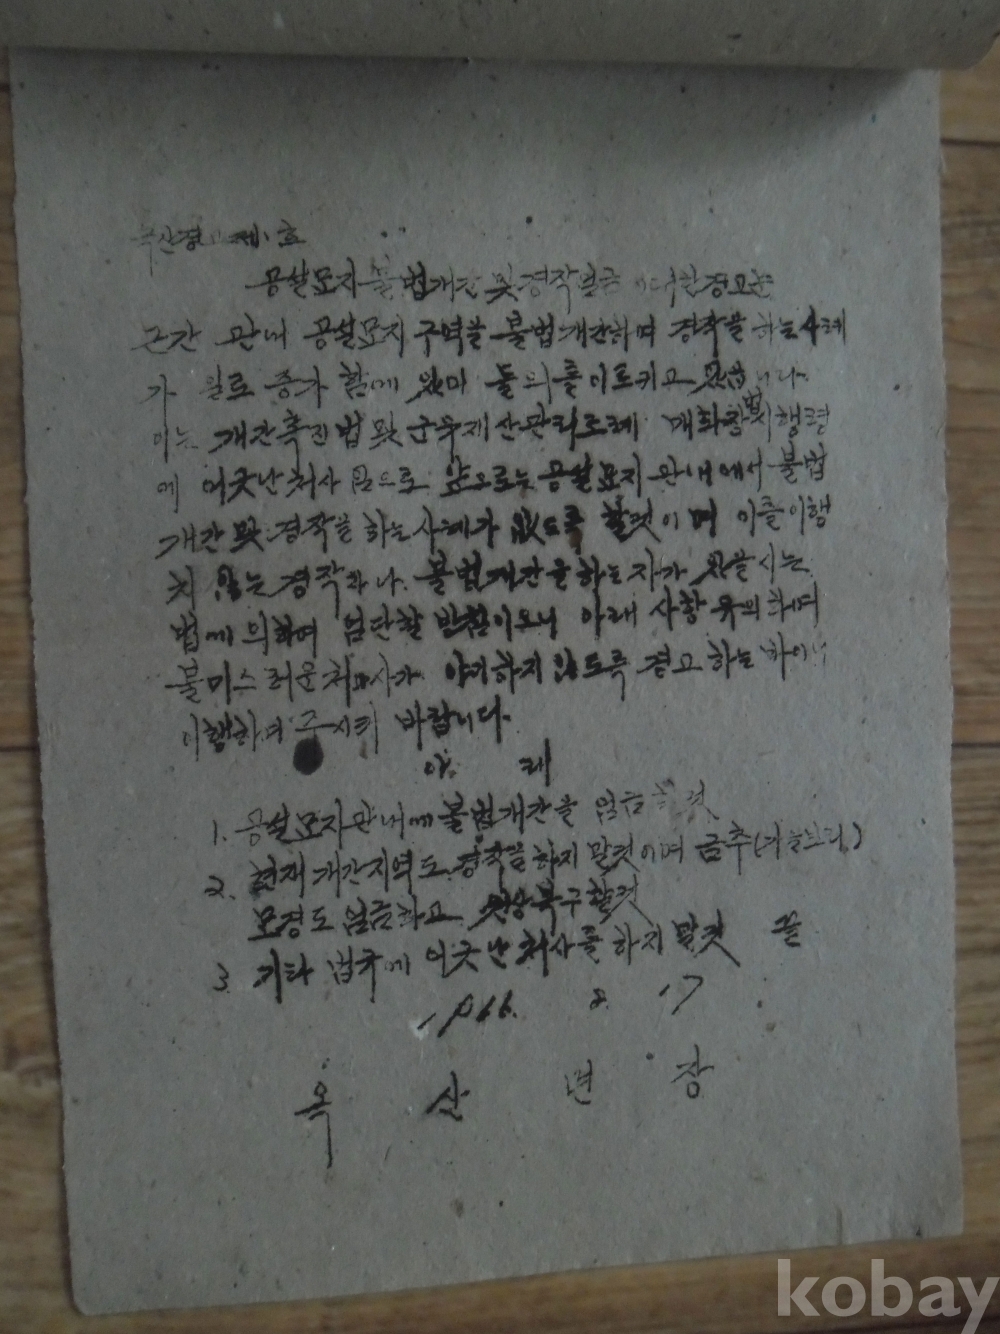 옥산경고 제1호
공설묘지 불법개간 및 경작일금에 대한 경고문
근간 관내 공설묘지 구역을 불법개간하며 경작을 하는 사례
가 일로 증가함에 물의를 이르키고 있습니다.
이는 개간촉진법 및 군유재산관리조례 매화장 시행령
에 어긋난 처사임으로 앞으로는 공설묘지 관내에서 불법
개간 및 경작을 하는 사례가 없도록 할것이며 이를 이행
치 않는 경작자나 불법개간을 하는자가 있을시는
법에 의하며 엄단할 방침이오니 아래 사항 유의하며
불미스러운 처사가 야기하지 않도록 경고하는 바이니
이행하여 주시기 바랍니다.
아 래
1. 공설묘지 관내에 불법개간을 엄금할것
2. 현재 개간지역도 경작을 하지 말것이며 금추(가을보리)
모경도 엄금하고 원상복구할것
3. 기타 법규에 어긋난 처사를 하지 말것 끝
1966. 8. 17
옥 산 면 장
kobay